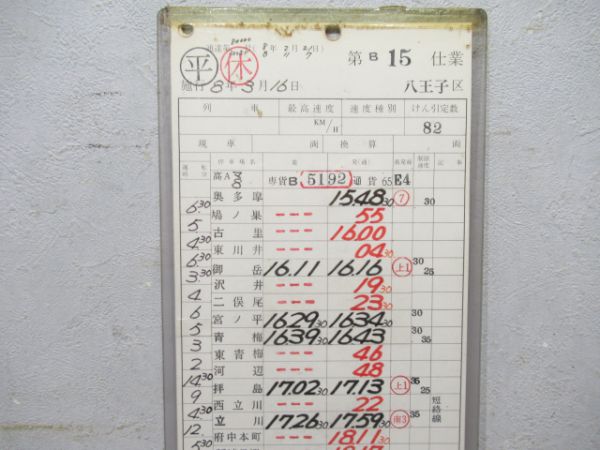 平 休 第B 15 仕業
施行 8年 3月 16日 八王子区
列車 最高速度 速度種別 けん引定数
KM/H 82
現車 両 換算 両
停車場名 着 発(通) 着発線 制限速度 記事
高A 専貨B 5192 通貨65 E4
奥多摩 15.48 30 ⑦ 30
6.30
鳩ノ巣 --- 55
5
古里 --- 16.00
4.30
東川井 --- 04 30
6.30
御岳 16.11 16.16 上1 30 25
3.30
沢井 --- 19 30
4
二俣尾 --- 23 30
6
宮ノ平 16.29 30 16.34 30 30
5
青梅 16.39 30 16.43 30 35
3
東青梅 --- 46
2
河辺 --- 48
14.30
拝島 17.02 30 17.13 上1 35 25
9
西立川 --- 22 短絡線
4.30
立川 17.26 30 17.59 30 南3 35
12
府中本町 --- 18.11 30